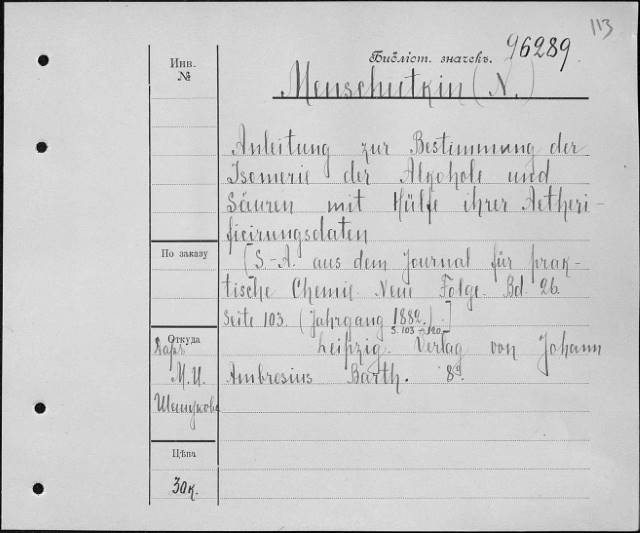 113
Инв. №
Библіот. значекъ. 96289
Menschutkin (N.)
Anleitung zur Bestimmung der
Isomerie der Alcohole und
Säuren mit Hülfe ihrer Aetheri-
ficirungsdaten
[S.-A. aus dem Journal für prak-
tische Chemie. Neue Folge. Bd. 26.
Seite 103. (Jahrgang 1882.)]
S. 103-120.
Leipzig. Verlag von Johann
Ambrosius Barth. 8º.
По заказу
Откуда
Даръ
М. И.
Цѣна
30к.